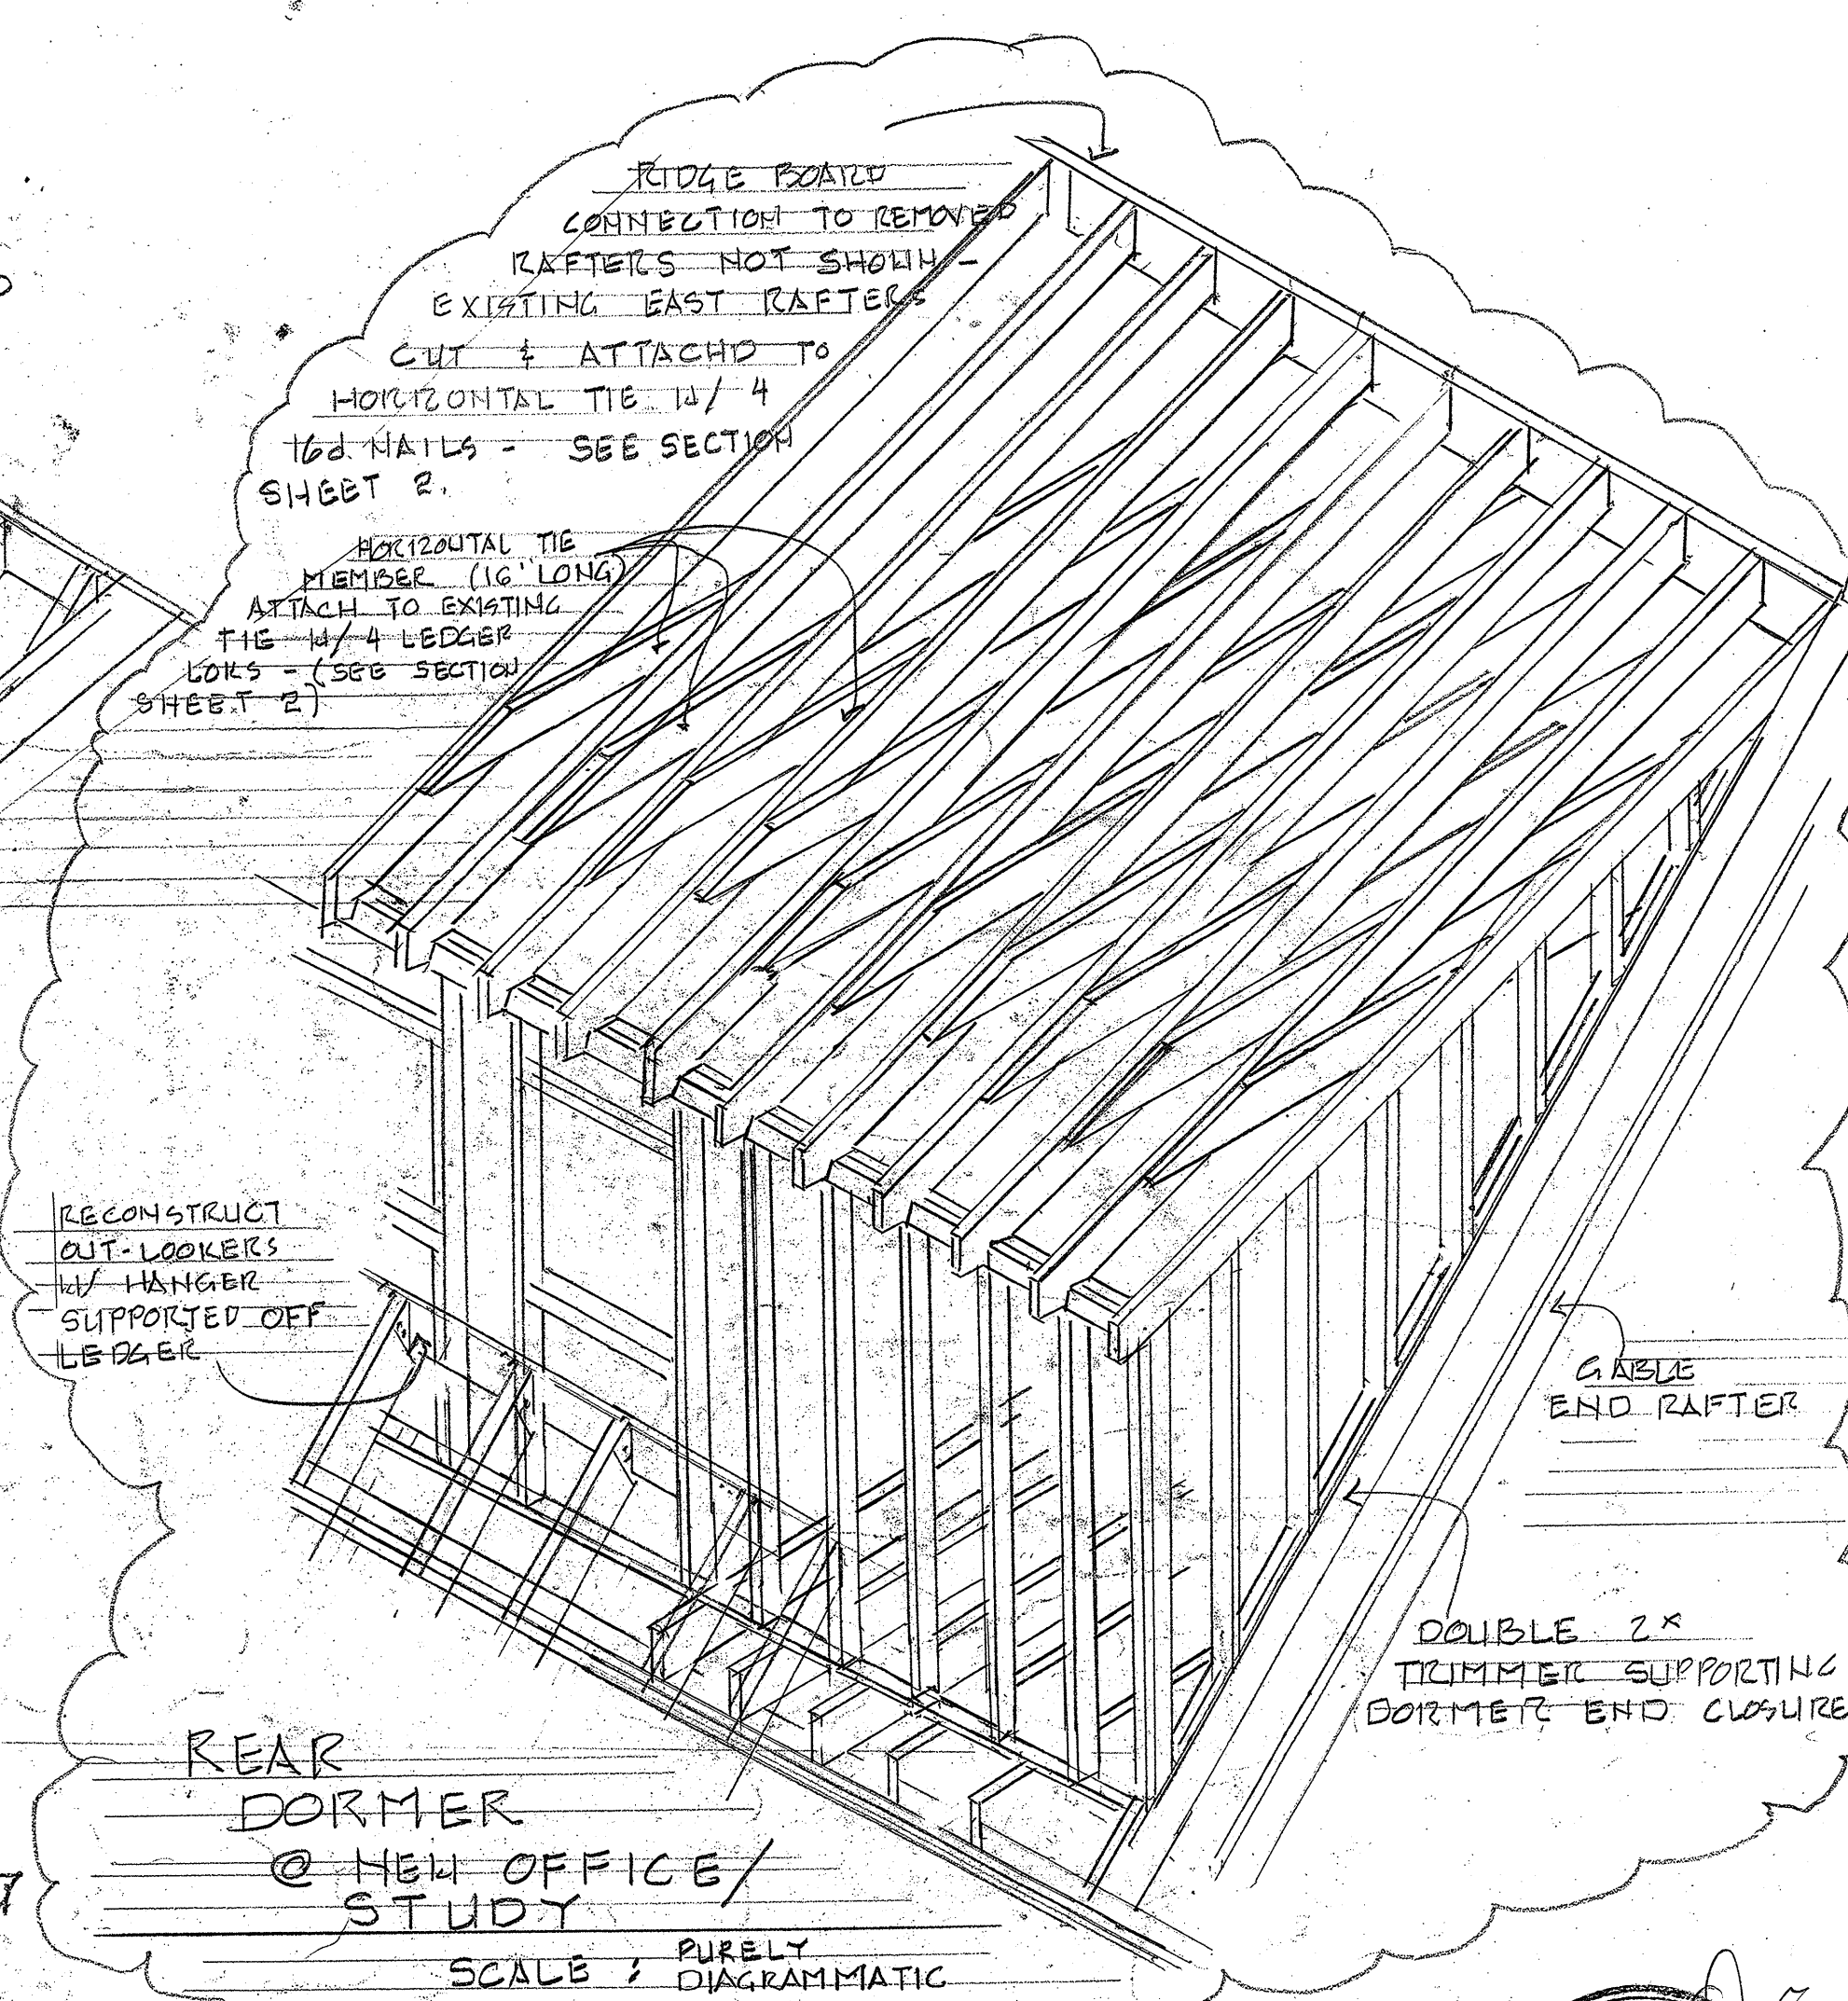 RIDGE BOARD
CONNECTION TO REMOVED
RAFTERS NOT SHOWN -
EXISTING EAST RAFTERS
CUT & ATTACHD TO
HORIZONTAL TIE W/ 4
16d NAILS - SEE SECTION
SHEET 2.
HORIZONTAL TIE
MEMBER (16' LONG)
ATTACH TO EXISTING
TIE W/ 4 LEDGER
LOKS - (SEE SECTION
SHEET 2)
RECONSTRUCT
OUT-LOOKERS
W/ HANGER
SUPPORTED OFF
LEDGER
GABLE
END RAFTER
DOUBLE 2x
TRIMMER SUPPORTING
DORMER END CLOSURE
REAR
DORMER
@ NEW OFFICE/
STUDY
SCALE : PURELY
DIAGRAMMATIC